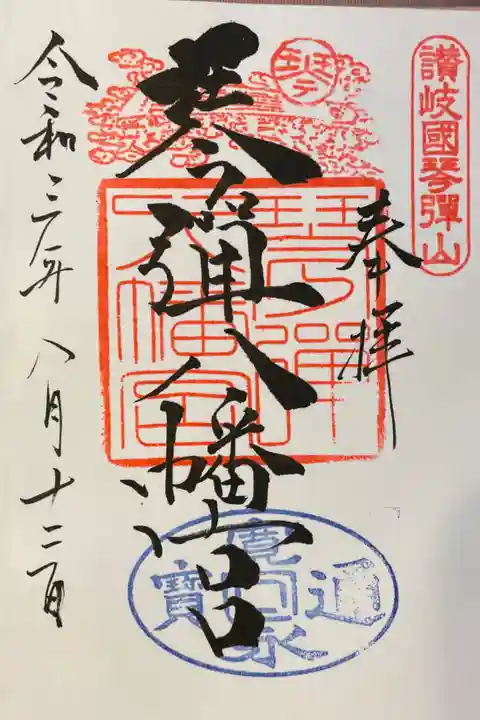 讃岐國琴彈山
奉拜
琴
琴彈八幡宮
琴彈
八幡宮
寛永通寳
令和三年八月十二日